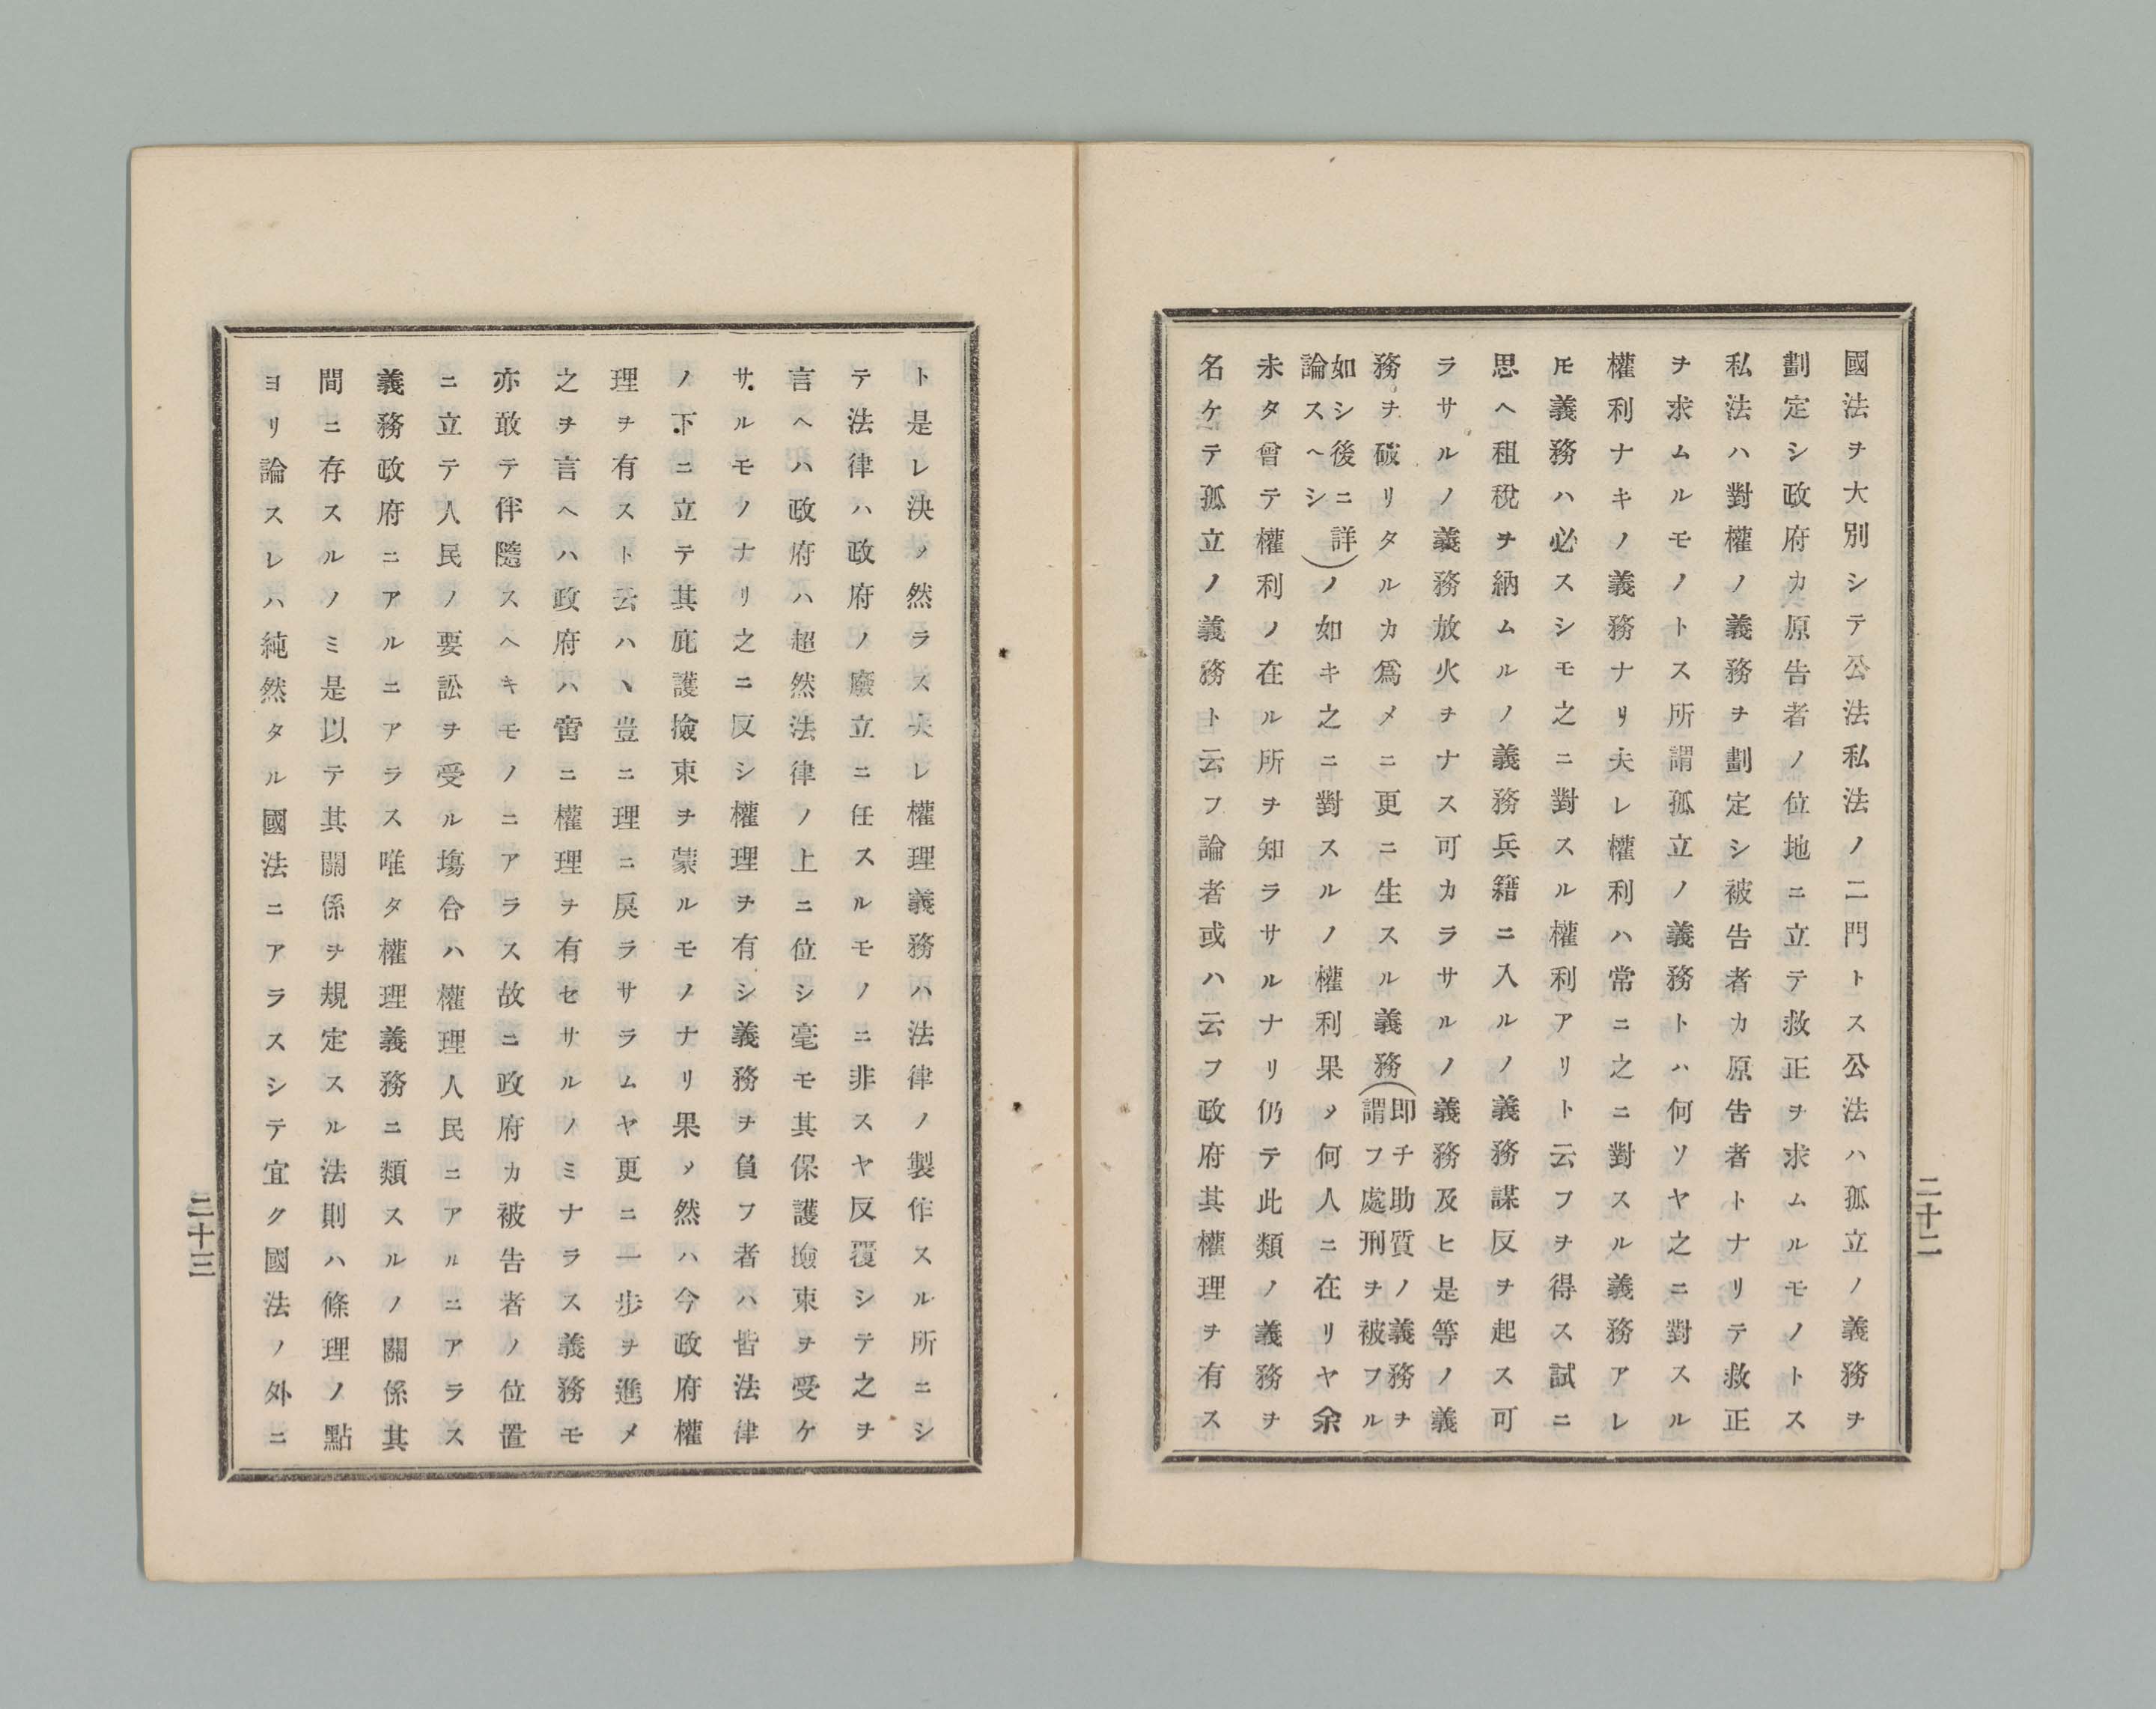 國法ヲ大別シテ公法私法ノ二門トス公法ハ孤立ノ義務ヲ
劃定シ政府カ原告者ノ位地ニ立テ救正ヲ求ムルモノトス
私法ハ對權ノ義務ヲ劃定シ被告者カ原告者トナリテ救正
ヲ求ムルモノトス所謂孤立ノ義務トハ何ソヤ之ニ對スル
權利ナキノ義務ナリ夫レ權利ハ常ニ之ニ對スル義務アレ
𪜈義務ハ必スシモ之ニ對スル權利アリト云フヲ得ス試ニ
思ヘ租稅ヲ納ムルノ義務兵籍ニ入ルノ義務謀反ヲ起ス可
ラサルノ義務放火ヲナス可カラサルノ義務及ヒ是等ノ義
務ヲ破リタルカ爲メニ更ニ生スル義務(即チ助質ノ義務ヲ
謂フ處刑ヲ被フル
如シ後ニ詳
論スヘシ)ノ如キ之ニ對スルノ權利果〆何人ニ在リヤ余
未タ曾テ權利ノ在ル所ヲ知ラサルナリ仍テ此類ノ義務ヲ
名ケテ孤立ノ義務ト云フ論者或ハ云フ政府其權理ヲ有ス
二十二
ト是レ決ノ然ラス夫レ權理義務ハ法律ノ製作スル所ニシ
テ法律ハ政府ノ廢立ニ任スルモノニ非スヤ反覆シテ之ヲ
言ヘハ政府ハ超然法律ノ上ニ位シ毫モ其保護撿束ヲ受ケ
サルモノナリ之ニ反シ權理ヲ有シ義務ヲ負フ者ハ皆法律
ノ下ニ立テ其庇護撿束ヲ蒙ルモノナリ果〆然ハ今政府權
理ヲ有スト云ハヽ豈ニ理ニ戾ラサラムヤ更ニ一歩ヲ進メ
之ヲ言ヘハ政府ハ啻ニ權理ヲ有セサルノミナラス義務モ
亦敢テ伴隨スヘキモノニアラス故ニ政府カ被告者ノ位置
ニ立テ人民ノ要訟ヲ受ル塲合ハ權理人民ニアルニアラス
義務政府ニアルニアラス唯タ權理義務ニ類スルノ關係其
間ニ存スルノミ是以テ其關係ヲ規定スル法則ハ條理ノ點
ヨリ論スレハ純然タル國法ニアラスシテ宜ク國法ノ外ニ
二十三